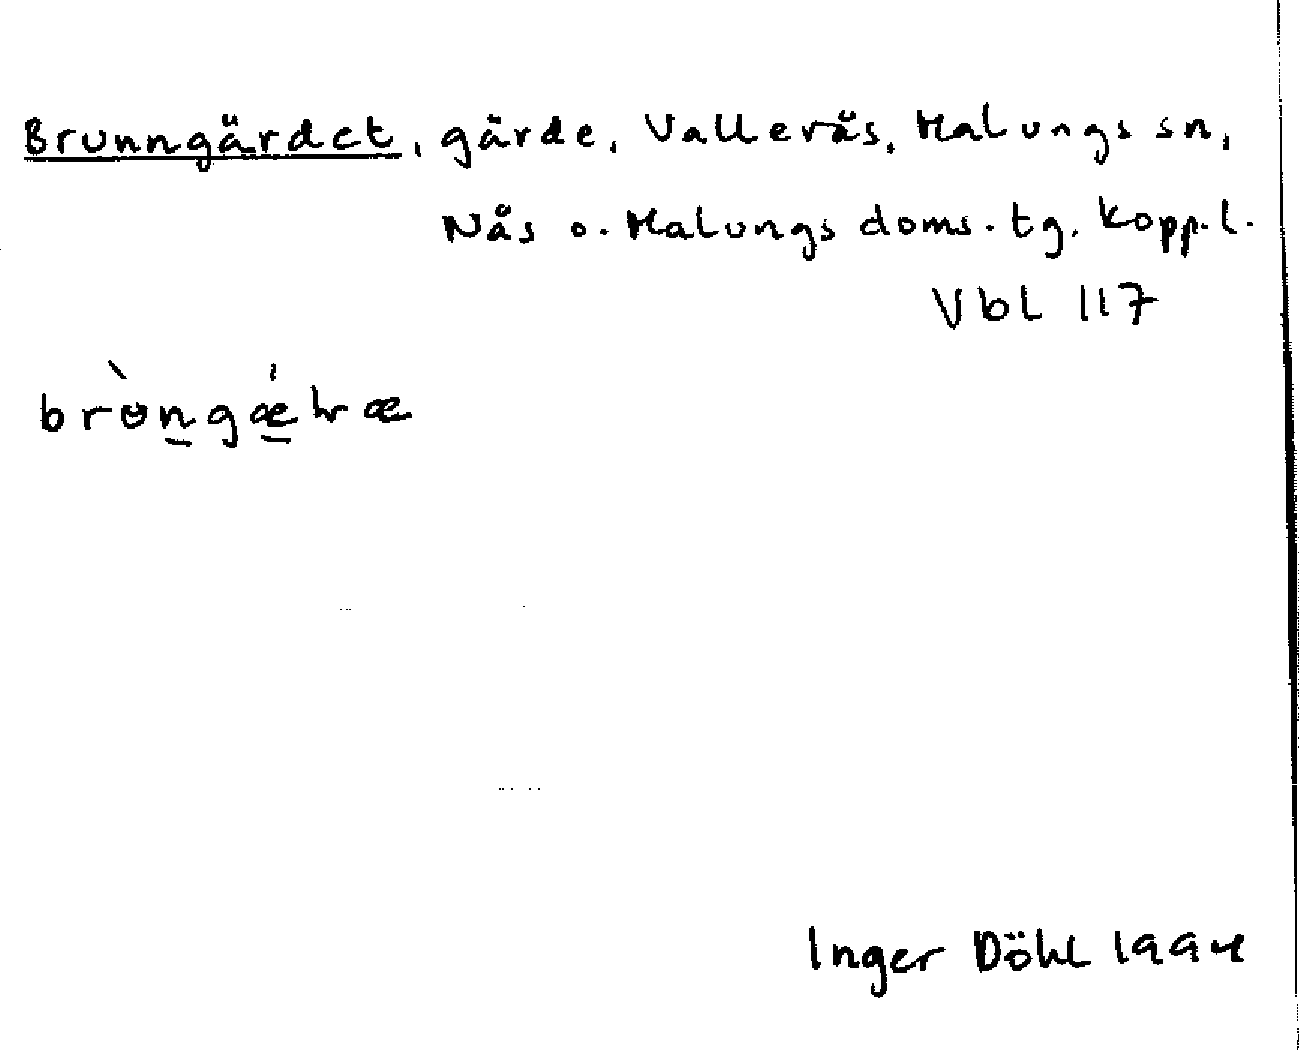 Brunngärdet, gärde, Vallerås, Malungs sn,
Nås o. Malungs doms.tg. Kopp.l.
Vbl 117
Inger Döhl 1994